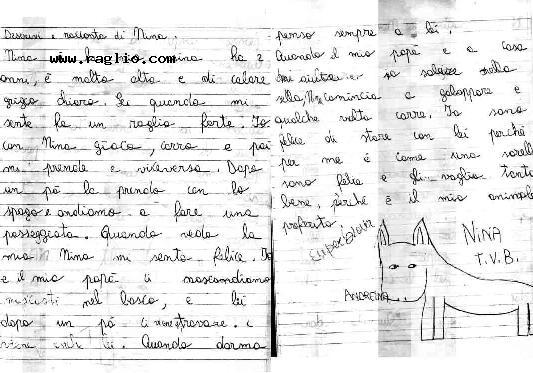 Descrivi e racconta di Nina.
Nina ha 2
www.raglio.com
anni, è molto alta e di colore
grigio chiaro. Lei quando mi
sente fa un raglio forte. Io
con Nina gioco, corro e poi
mi prende e viceversa. Dopo
un pò la prendo con lo
spago e andiamo a fare una
passeggiata. Quando vedo la
mia Nina mi sento felice. Io
e il mio papà ci nascondiamo
nel bosco, e lei
dopo un pò ci viene a trovare.
lei. Quando dormo
penso sempre a lei.
Quando il mio papà è a casa
a salire sulla
sella, Nina comincia a galoppare e
qualche volta corre. Io sono
felice di stare con lei perchè
per me è come una sorella
sono felice e gli voglio tanto
bene, perchè è il mio animale
preferito
NINA
T.V.B.
ANDREINA